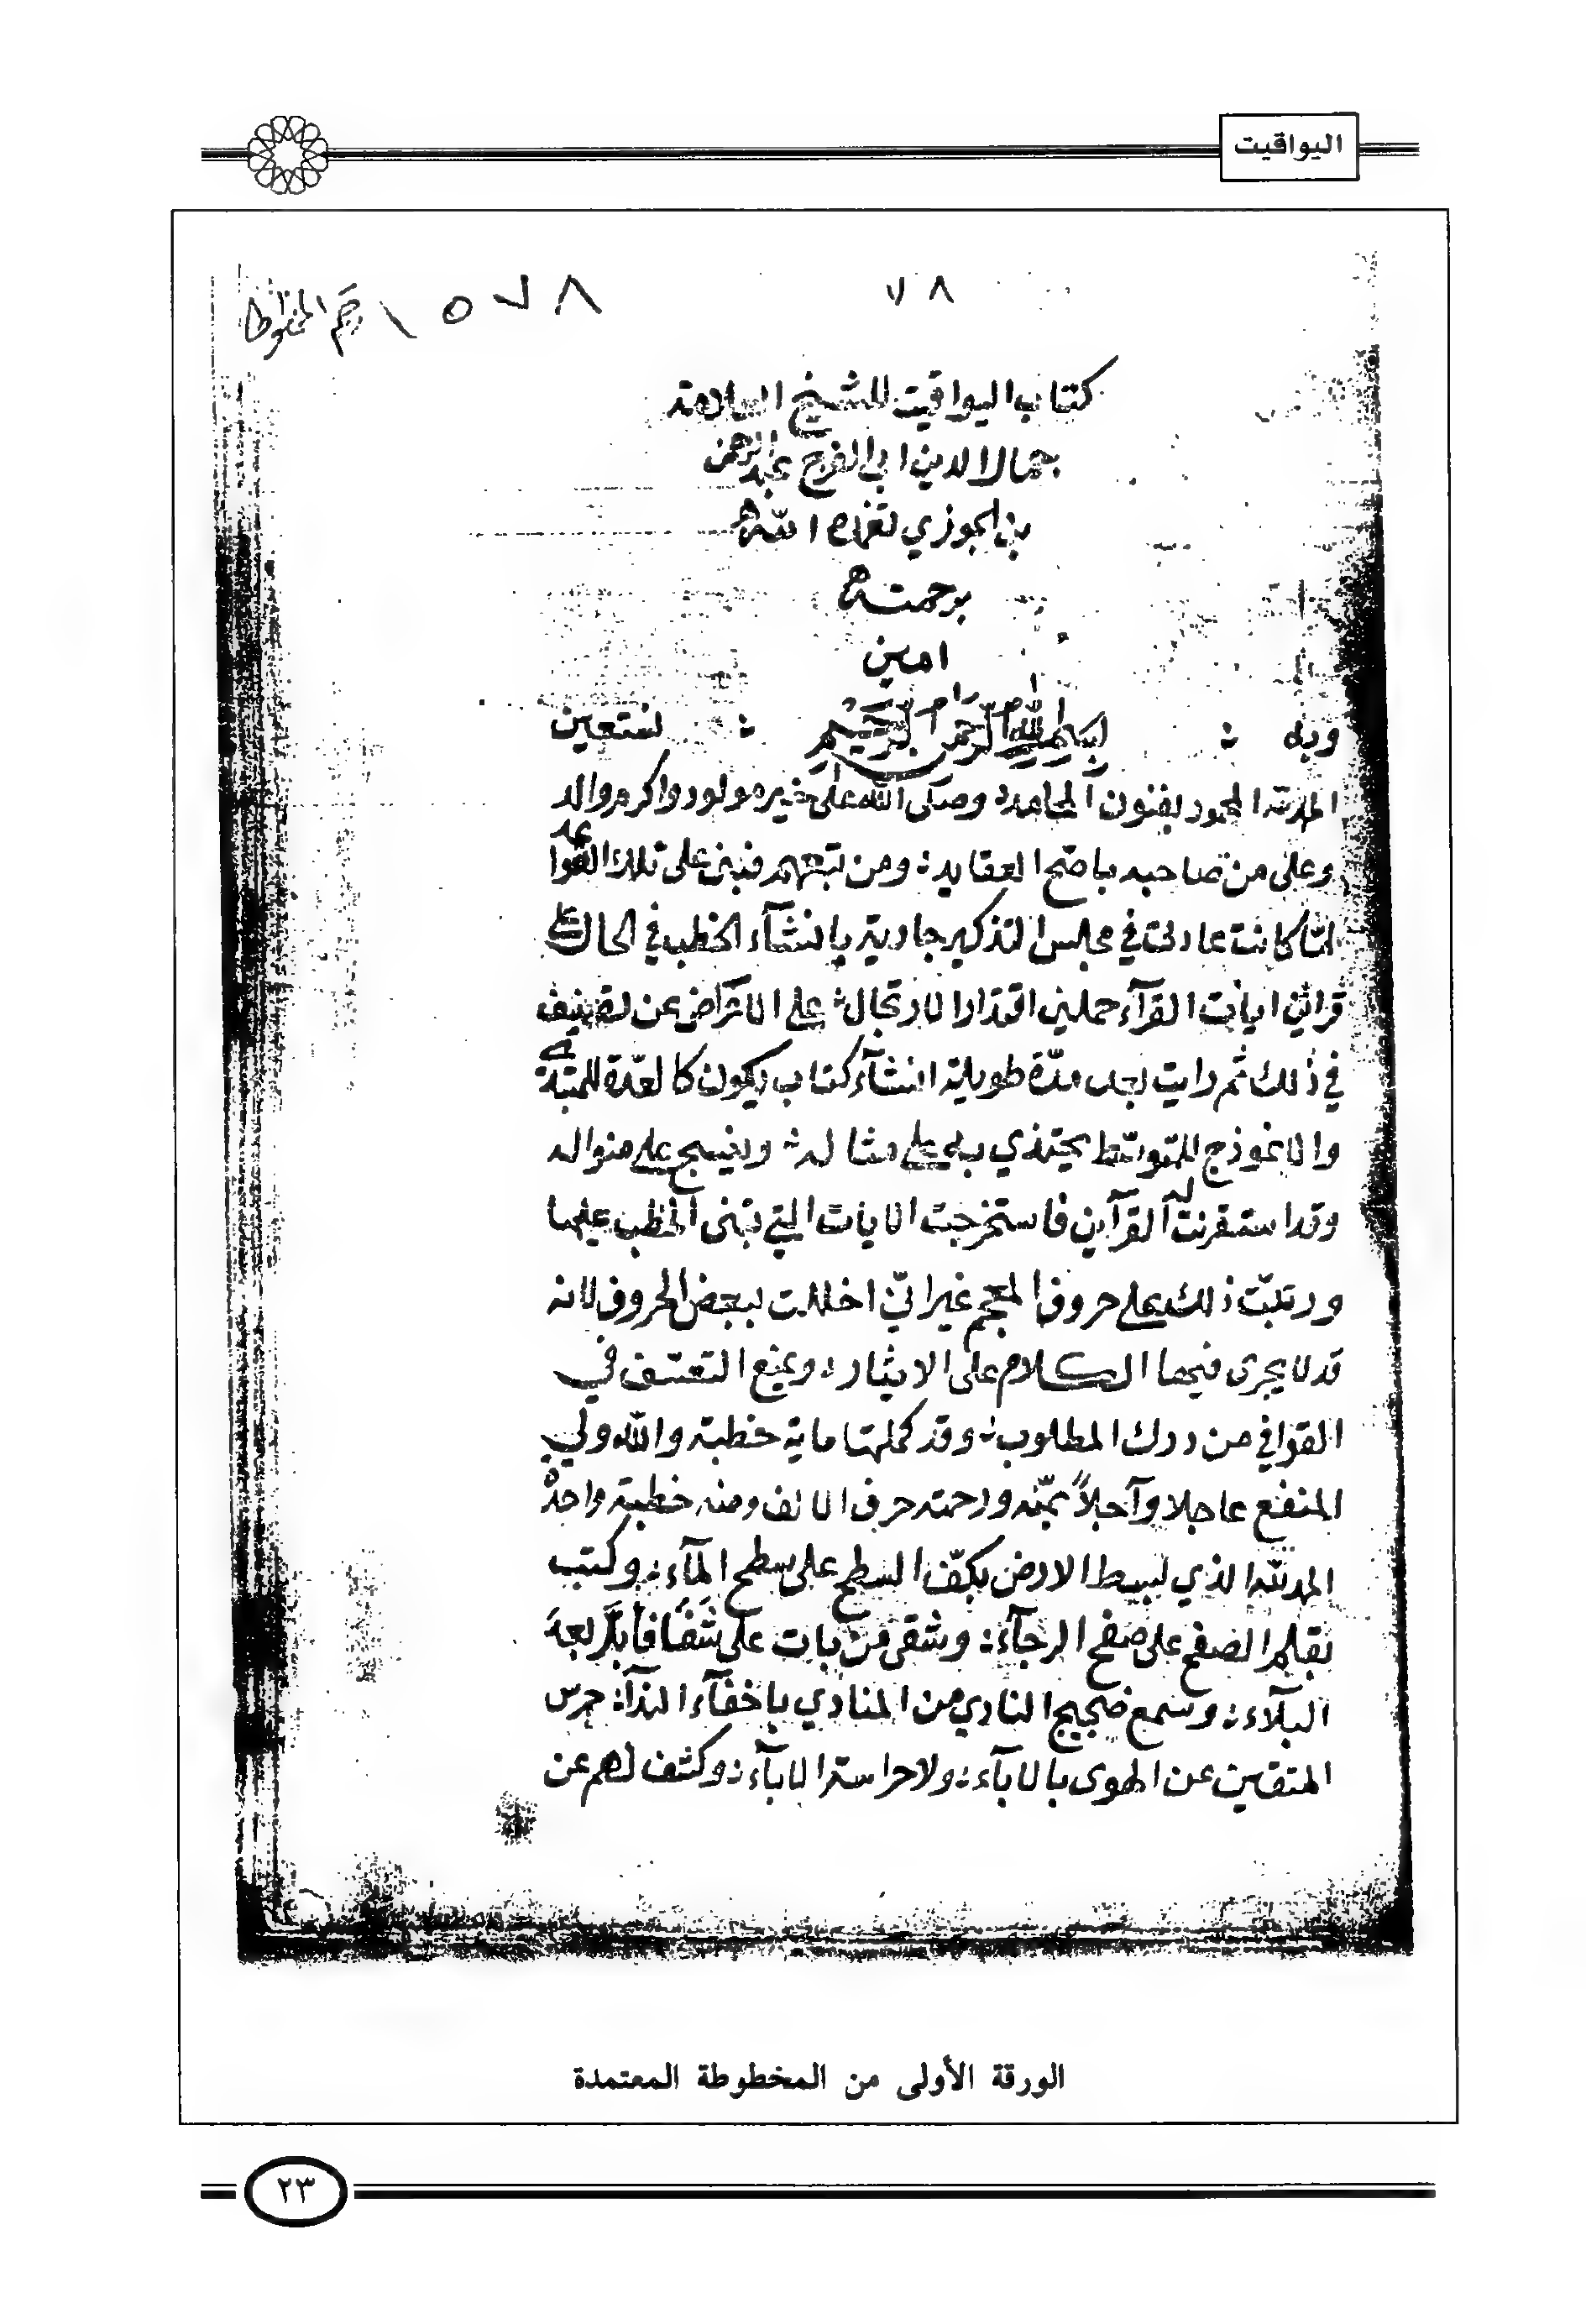 اليواقيت
٧٨
رقم المخطوط ١٥٧٨
كتاب اليواقيت للشيخ العلامة
جمال الدين ابي الفرج عبد الرحمن
بن الجوزي تغمده الله
برحمته
امين
وبه بسم الله الرحمن الرحيم نستعين
الحمد لله المحمود بفنون المحامد وصلى الله على خير مولود واكرم والد
وعلى من صاحبه باصح العقايد ومن تبعهم فبنى على تلك القواعد
لما كانت عادتي في مجلس التذكير جارية بانشآء الخطب في الحال على
قرائن ايات القرآء حملني اقتدار الارتجال على الاعراض عن تصنيف
في ذلك ثم رايت بعد مدّة طويلة انشآء كتاب يكون كالعدّة للمبتدي
والانموذج للمتوسّط يحتذي به على مثاله وينسج على منواله
وقد استقريت له القرآن فاستخرجت الايات التي تبنى الخطب عليها
ورتبّت ذلك على حروف المعجم غير انّي اخللت ببعض الحروف لانه
قد لا يجرى فيها الكلام على الايثار ويمنع التعسّف في
القوافي من درك المطلوب وقد كملتها ماية خطبة والله ولي
المنفع عاجلا وآجلاً بمنّه ورحمته حرف الالف ومنه خطبة واحدة
الحمد لله الذي بسط الارض بكفّ السطح على سطح المآء وكتب
بقلم الصفح على صفح الرجآء وشفى من بات على شفا فأبلّ بعد
البلآء وسمع ضجيج النادي من المنادي باخفآء الندآ حرس
المتقين عن الهوى بالابآء ولا حراسة الابآء وكشف لهم عن
الورقة الأولى من المخطوطة المعتمدة
٢٣